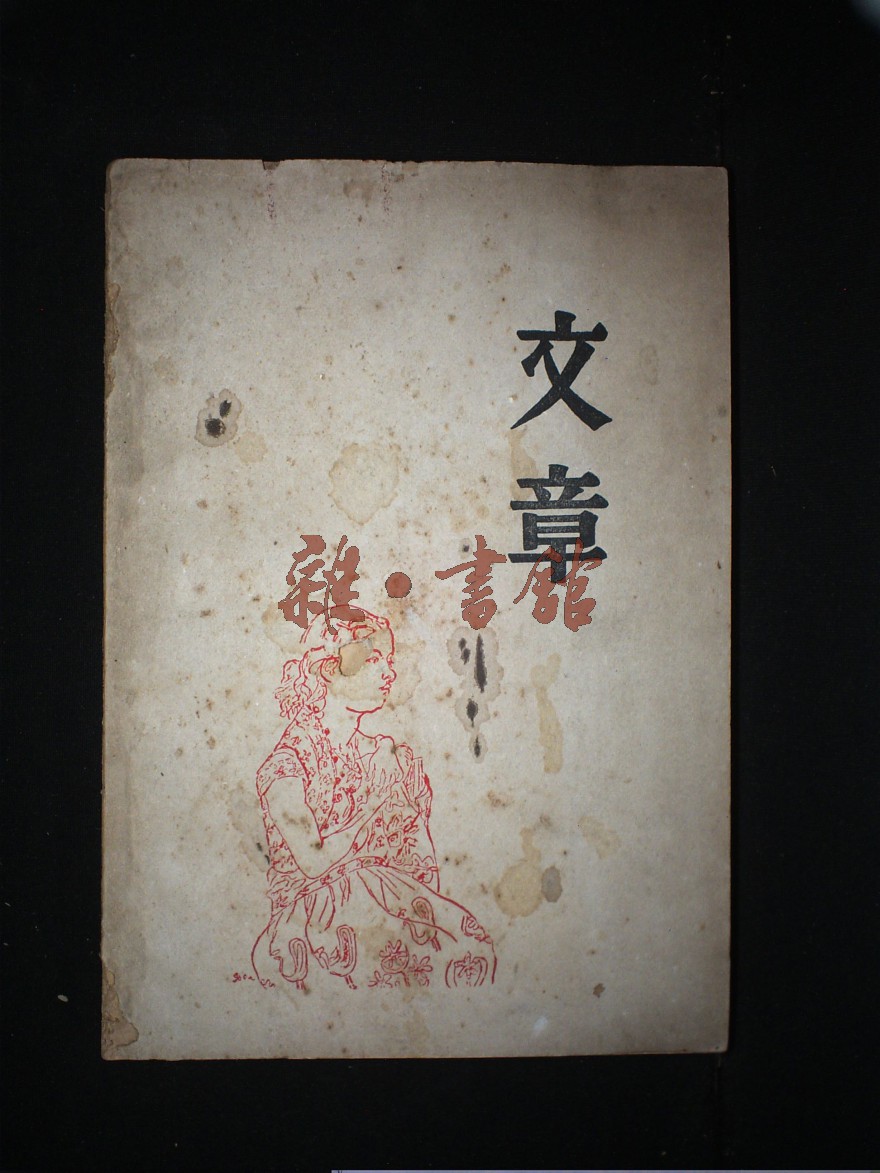 文章
雜·書館